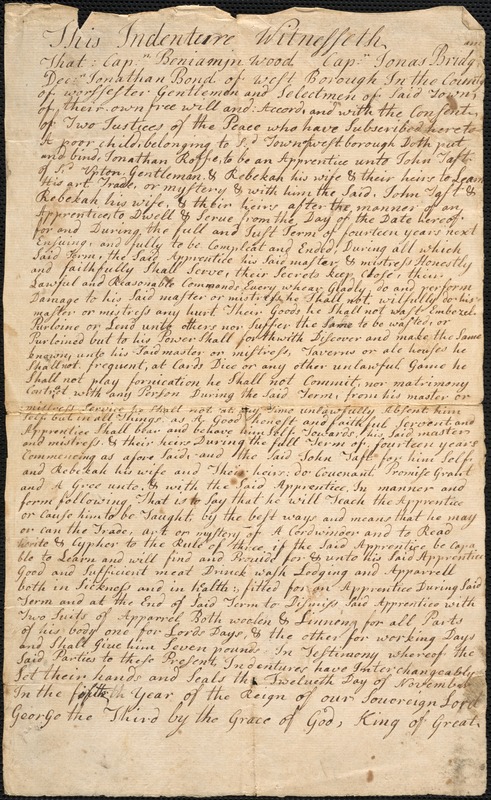 This Indenture Witnesseth and
That: Cap.n Beniamin Wood Cap.n Jonas Bridg
Dec.n Jonathan Bond of west Borough In the County
of worssester Gentlemen and Selectmen of Said Town
of, their own free will and: Accord, and with the Consent
of Two Justices of the Peace who have Subscribed hereto
A poor child, belonging to S.d Town westborough Doth put
and bind, Jonathan Roffe, to be an Apprentice unto John Taft
of S.d Upton, Gentleman, & Rebekah his wife & their heirs to Learn
His art Trade, or mystery & with him the Said, John Taft &
Rebekah his wife, & their heirs after the manner of an
Apprentice, to Dwell & Serve from the Day of the Date hereof
for and During, the full and Just Term of fourteen years next
Ensuing, and fully to be Compleat and Ended, During all which
Said Term, the Said Apprentice his Said master, & mistress Honestly
and faithfully Shall Serve, their Secrets keep Close, their
Lawful and Reasonable Commands Every whear Gladly, do and perform
Damage to his Said master or mistress he Shall not, wilfully do his
master or mistress any hurt Their Goods he Shall not wast Embezel
Purloine or Lend unto others nor Suffer the Same to be wasted, or
Purloined but to his Power Shall forthwith Discover and make the Same
known, unto his Said master or mistress, Taverns or ale houses he
Shall not frequent, at Cards Dice or any other unlawful Game he
Shall not play fornication he Shall not Commit, nor matrimony
Contract with any Person During the Said Term, from his master or
mistress Service he Shall not at any Time unlawfully Absent him
Self but in all things as a Good honest and faithful Servant and
Apprentice Shall bear and behave him Self Towards, his Said master
and mistress, & their heirs During the full Term of fourteen years
Commencing as afore Said, and the Said John Taft for him Self
and Rebekah his wife and Their heirs: do Covenant Promise Grant
and A Gree unto, & with the Said Apprentice, In manner and
form following, That is to Say that he will Teach the Apprentice
or Cause him to be Taught, by the best ways and means that he may
or can the Trade, art or mystery of A Cordwinder and to Read
write & Cypher to the Rule of three, if the Said Apprentice be Capa
ble to Learn and will find and Provide for & unto his Said Apprentice
Good and Sufficient meat Drinck wash Lodging and Apparrel
both in Sickness and in Health: fitted for an Apprentice During Said
Term and at the End of Said Term to Dismiss Said Apprentice with
Two Suits of Apparrel Both woolen & Linnen, for all Parts
of his body one for Lords Days, & the other for working Days
and Shall Give him Seven pounds In Testimony whereof the
Said Parties to these Present Indentures have Interchangeably
Set their hands and Seals the Twelveth Day of November
In the Year of the Reign of our Sovereign Lord
George the Third by the Grace of God, King of Great